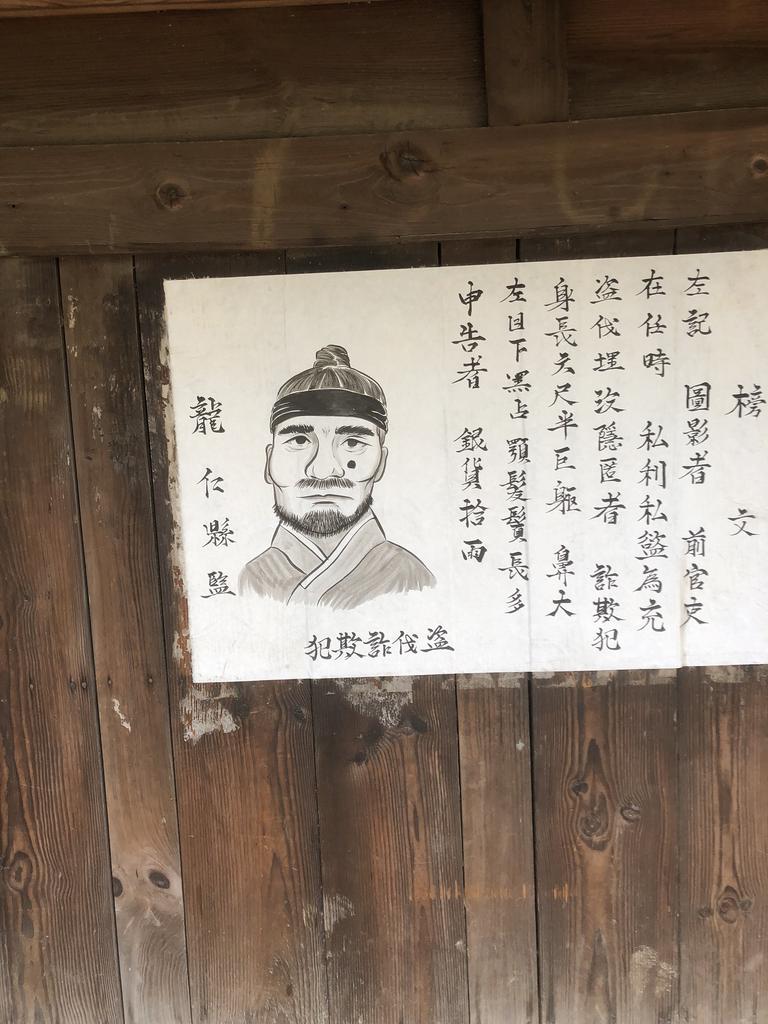 榜文
左記 圖影者 前官吏
在任時 私利私慾為充
盜伐埋沒隱匿者 詐欺犯
身長六尺半巨軀 鼻大
左目下黑占 顎髮鬢長多
申告者 銀貨拾兩
盜伐詐欺犯
龍仁縣監